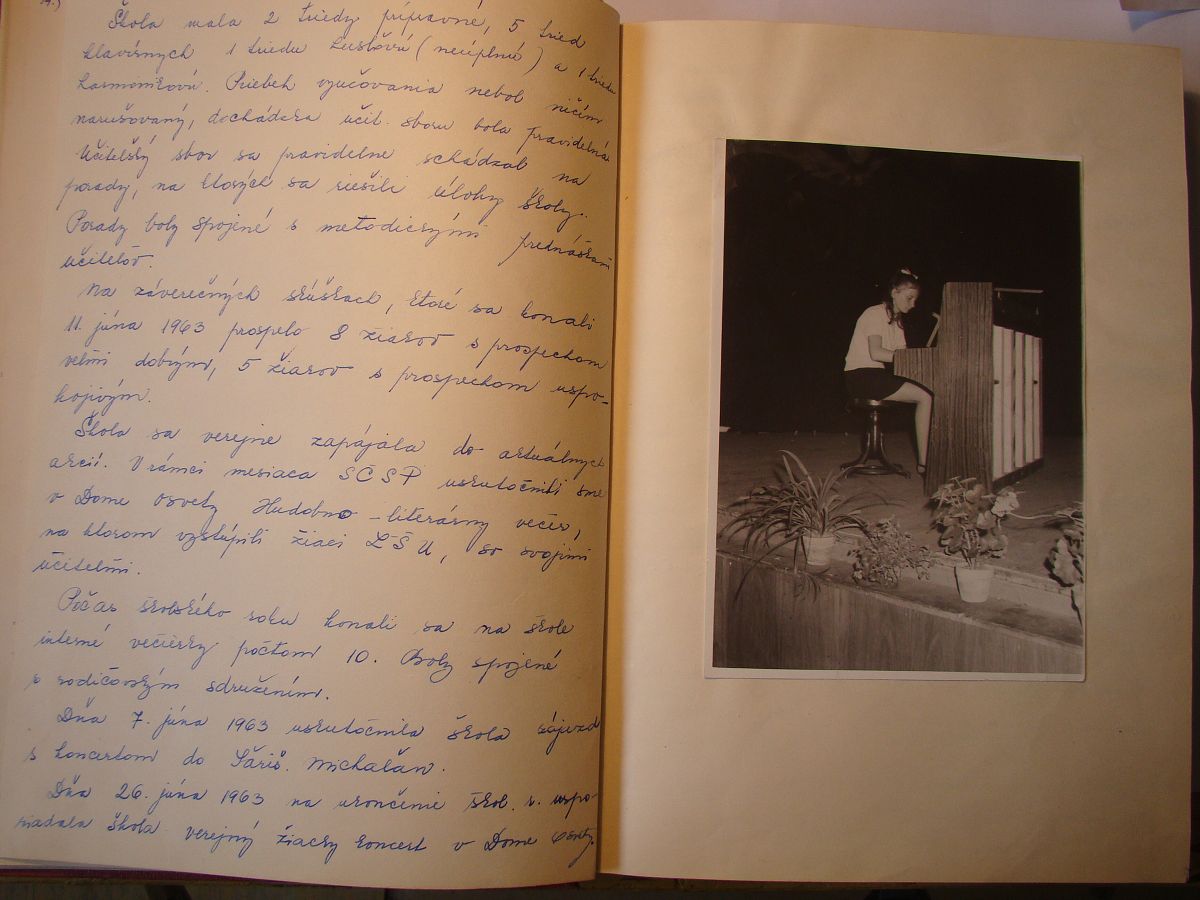 14.)
Škola mala 2 triedy prípravné, 5 tried
klavírnych 1 triedu husľovú (neúplnú) a 1 triedu
harmonikovú. Priebeh vyučovania nebol ničím
narušovaný, dochádzka učit. sboru bola pravidelná.
Učiteľský sbor sa pravidelne schádzal na
porady, na ktorých sa riešili úlohy školy.
Porady boly spojené s metodickými prednáškami
učiteľov.
Na záverečných skúškach, ktoré sa konali
11. júna 1963 prospelo 8 žiakov s prospechom
veľmi dobrým, 5 žiakov s prospechom uspo-
kojivým.
Škola sa verejne zapájala do aktuálnych
akcií. V rámci mesiaca SČSP uskutočnili sme
v Dome osvety Hudobno-literárny večer,
na ktorom vystúpili žiaci ĽŠU, so svojimi
učiteľmi.
Počas školského roku konali sa na škole
interné večierky počtom 10. Boly spojené
s rodičovským združením.
Dňa 7. júna 1963 uskutočnila škola zájazd
s koncertom do Šariš. Michalian.
Dňa 26. júna 1963 na ukončenie škol. r. uspo-
riadala škola verejný žiacky koncert v Dome osvety.